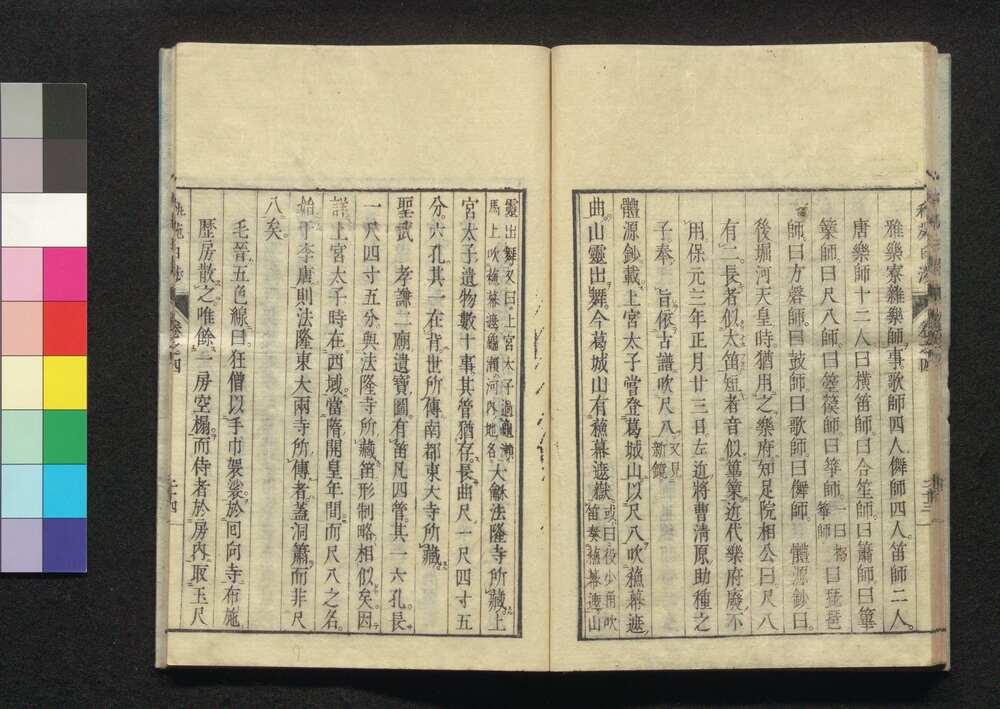 雅樂寮雜樂師事歌師四人儛師四人笛師二人
唐樂師十二人曰橫笛師曰合笙師曰簫師曰篳
篥師曰尺八師曰箜篌師曰箏師一曰搊箏師曰琵琶
師曰方磬師曰鼓師曰歌師曰儛師 體源鈔曰
後堀河天皇時猶用之樂府知足院相公曰尺八
有二長者似大笛短者音似篳篥近代樂府廢不
用保元三年正月廿三日左近將曹清原助種之
子奉 旨依古譜吹尺八又見新鏡
體源鈔載上宮太子嘗登葛城山以尺八吹蘓幕遮
曲山靈出舞今葛城山有蘓幕遮嶽或曰役少角吹笛奏蘓幕遮山
靈出舞又曰上宮太子過龜瀬馬上吹蘓幕遮龜瀬河內地名大龢法隆寺所藏上
宮太子遺物數十事其管猶存長曲尺一尺四寸五
分六孔其一在背世所傳南都東大寺所藏
聖武 孝謙二廟遺寶圖有笛凡四管其一六孔長
一尺四寸五分與法隆寺所藏笛形制略相似矣因
詳上宮太子時在西域當隋開皇年間而尺八之名
始于李唐則法隆東大兩寺所傳者蓋洞簫而非尺
八矣
毛晉五色線曰狂僧以手巾袈裟於囘向寺布施
歷房散之唯餘一房空榻而侍者於房內取玉尺
卷之四
二十四